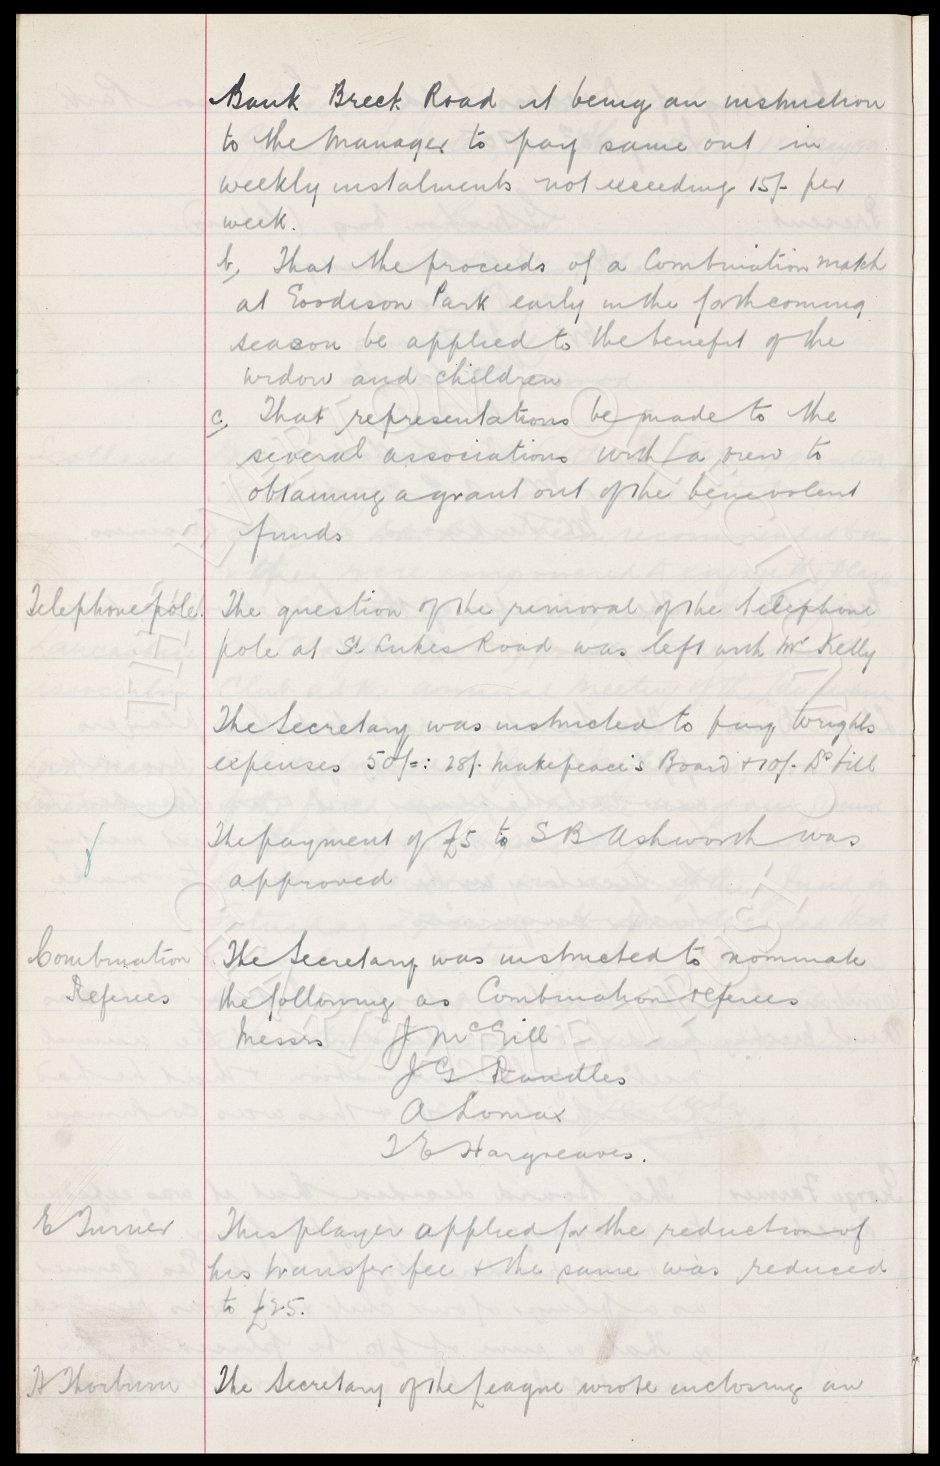 Bank Breck Road it being an instruction
to the Manager to pay same out in
weekly instalments not exceeding 15/- per
week.
b, That the proceeds of a Combination match
at Goodison Park early in the forthcoming
season be applied to the benefit of the
widow and children
c, That representations be made to the
several associations with a view to
obtaining a grant out of the benevolent
funds
Telephone pole. The question of the removal of the telephone
pole at St Lukes Road was left with Mr Kelly
The Secretary was instructed to pay Wrights
expenses 50/=: 28/- Makepeace's Board + 10/- Dr Hill
The payment of £5 to S B Ashworth was
approved
Combination The Secretary was instructed to nominate
Referees the following as Combination referees
Messrs J McGill
J G Randles
A Lomax
T E Hargreaves.
E Turner This player applied for the reduction of
his transfer fee + the same was reduced
to £25.
A Thorburn The Secretary of the League wrote enclosing an